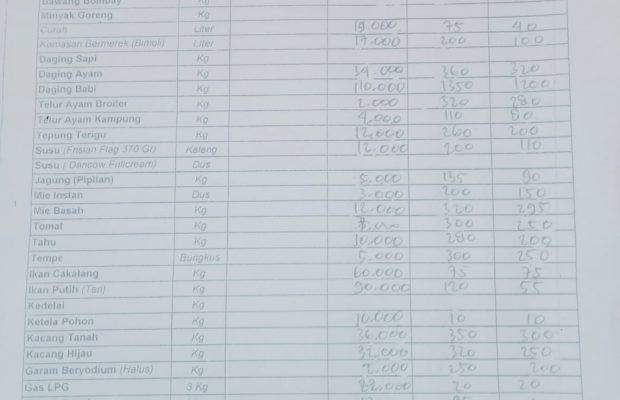 Bawang Bombay Kg
Minyak Goreng Kg
Curah Liter 19.000 75 40
Kemasan Bermerek (Bimoli) Liter 17.000 200 100
Daging Sapi Kg
Daging Ayam Kg 34.000 360 320
Daging Babi Kg 110.000 1350 1200
Telur Ayam Broiler Kg 2.000 320 280
Telur Ayam Kampung Kg 4.000 110 80
Tepung Terigu Kg 12.000 260 200
Susu (Frisian Flag 370 Gr) Kaleng 12.000 200 110
Susu ( Dancow Fullcream) Dus
Jagung (Pipilan) Kg 5.000 135 90
Mie Instan Dus 3.000 200 150
Mie Basah Kg 12.000 320 295
Tomat Kg 300 250
Tahu Kg 10.000 280 200
Tempe Bungkus 5.000 300 250
Ikan Cakalang Kg 60.000 75 75
Ikan Putih (Teri) Kg 90.000 120 55
Kedelai Kg
Ketela Pohon Kg 10.000 10 10
Kacang Tanah Kg 36.000 350 300
Kacang Hijau Kg 32.000 320 250
Garam Beryodium (Halus) Kg 2.000 250 200
Gas LPG 3 Kg 22.000 20 20